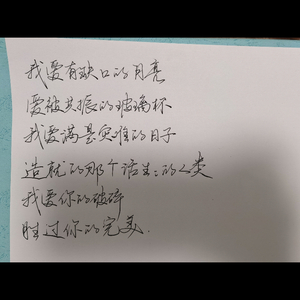 我爱有缺口的月亮
爱被共振的玻璃杯
我爱满是灾难的日子
造就的那个活生生的人类
我爱你的破碎
胜过你的完美.